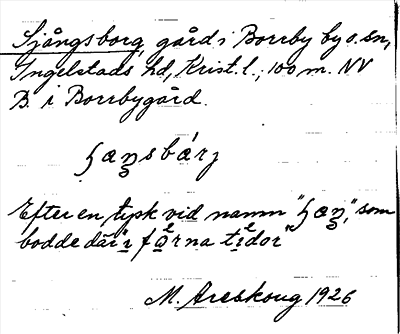 Sjångsborg, gård i Borrby by o. sn,
Ingelstads hd, Krist. l.; 100 m. NV
B. i Borrbygård.
ɧæŋsbárj
Efter en tysk vid namn "ɧæŋ", som
bodde där "i førna tidor"
M. Areskoug 1926